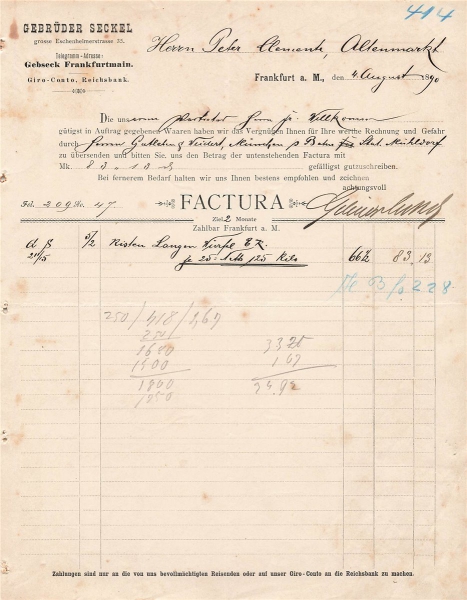 414
GEBRÜDER SECKEL
grosse Eschenheimerstrasse 33.
Telegramm-Adresse:
Gebseck Frankfurtmain.
Giro-Conto, Reichsbank.
Herrn Peter Clemente, Altenmarkt
Frankfurt a. M., den 4. August 1890
Die unserm Vertreter Herrn Willkomm
gütigst in Auftrag gegebenen Waaren haben wir das Vergnügen Ihnen für Ihre werthe Rechnung und Gefahr
durch Herrn München p Bahn Stat. Mühldorf
zu übersenden und bitten Sie, uns den Betrag der untenstehenden Factura mit
Mk. 83,13 gefälligst gutzuschreiben.
Bei fernerem Bedarf halten wir uns Ihnen bestens empfohlen und zeichnen
achtungsvoll
Fol. 209 No. 47.
FACTURA
Ziel 2 Monate
Zahlbar Frankfurt a. M.
5/2 Kisten Langen
je 25 Netto 125 Kilo 66½ 83.13
228
250/418/1,67
250
1680
1500
1800
1750
33 25
1 67
34.92
Zahlungen sind nur an die von uns bevollmächtigten Reisenden oder auf unser Giro-Conto an die Reichsbank zu machen.